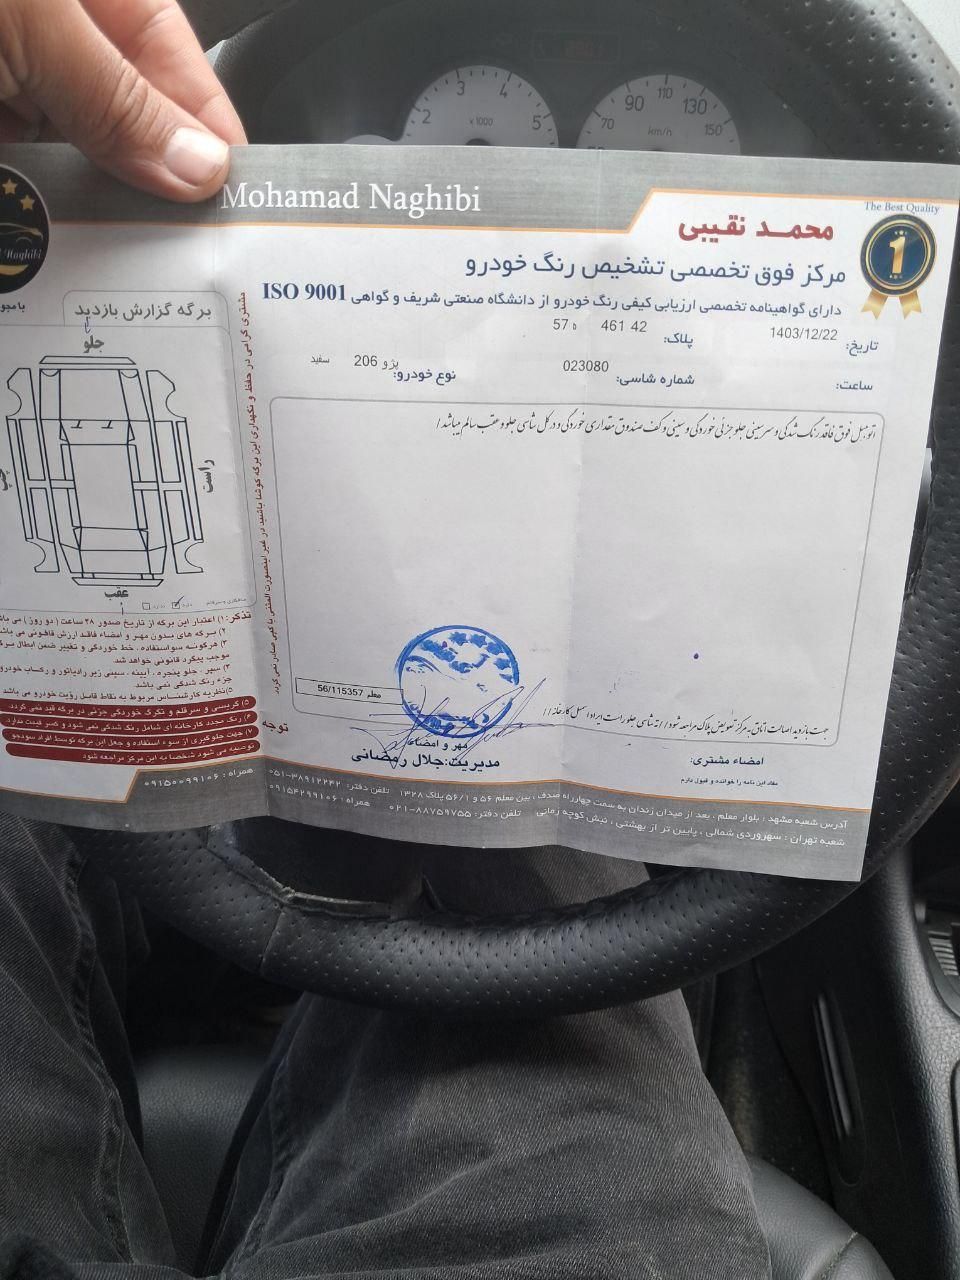 2
3
4
5
x1000
70
90
110
130
150
km/h
Mohamad Naghibi
The Best Quality
1
محمد نقیبی
مرکز فوق تخصصی تشخیص رنگ خودرو
دارای گواهینامه تخصصی ارزیابی کیفی رنگ خودرو از دانشگاه صنعتی شریف و گواهی ISO 9001
تاریخ: 1403/12/22
پلاک: 42 461 ه 57
ساعت:
شماره شاسی: 023080
نوع خودرو: پژو 206 سفید
اتومبیل فوق فاقد رنگ شدگی و سرسینی جلو جزئی خوردگی و سینی و کف صندوق مقداری خوردگی و در کل شاسی جلو و عقب سالم میباشد/
جهت بازدید اصالت اتاق به مرکز تعویض پلاک مراجعه شود//ته شاسی جلو راست ایراد اسمبل کارخانه//
معلم 56/115357
مهر و امضاء
مدیریت: جلال رمضانی
امضاء مشتری:
مفاد این نامه را خوانده و قبول دارم
برگه گزارش بازدید
جلو
راست
چپ
عقب
تذکر: ۱) اعتبار این برگه از تاریخ صدور ۴۸ ساعت (دو روز) می
۲) برگه های بدون مهر و امضاء فاقد ارزش قانونی می
۳) هرگونه سواستفاده ، خط خوردگی و تغییر ضمن ابطال
موجب پیگرد قانونی خواهد شد.
۴) سپر ، جلو پنجره ، آیینه ، سینی زیر رادیاتور و رکاب خودرو
جزء رنگ شدگی نمی باشد.
۵) نظریه کارشناس مربوط به نقاط قابل رؤیت خودرو می باشد
۵) گریسی و سر قلم و تگرگ خوردگی جزئی در برگه قید نمی گردد.
۶) رنگ مجدد کارخانه ای شامل رنگ شدگی نمی شود و کسر قیمت ندارد.
۷) جهت جلوگیری از سوء استفاده و جعل این برگه توسط افراد سودجو
توصیه می شود شخصاً به این مرکز مراجعه شود
توجه
آدرس شعبه مشهد : بلوار معلم ، بعد از میدان زندان به سمت چهارراه صدف ، بین معلم ۵۶ و ۵۶/۱ پلاک ۱۳۲۸ تلفن دفتر: ۳۸۹۱۲۲۴۲-۰۵۱ همراه : ۰۹۱۵۰۰۹۹۱۰۶
شعبه تهران : سهروردی شمالی ، پایین تر از بهشتی ، نبش کوچه زمانی تلفن دفتر: ۸۸۷۵۹۷۵۵-۰۲۱ همراه : ۰۹۱۵۴۲۹۹۱۰۶